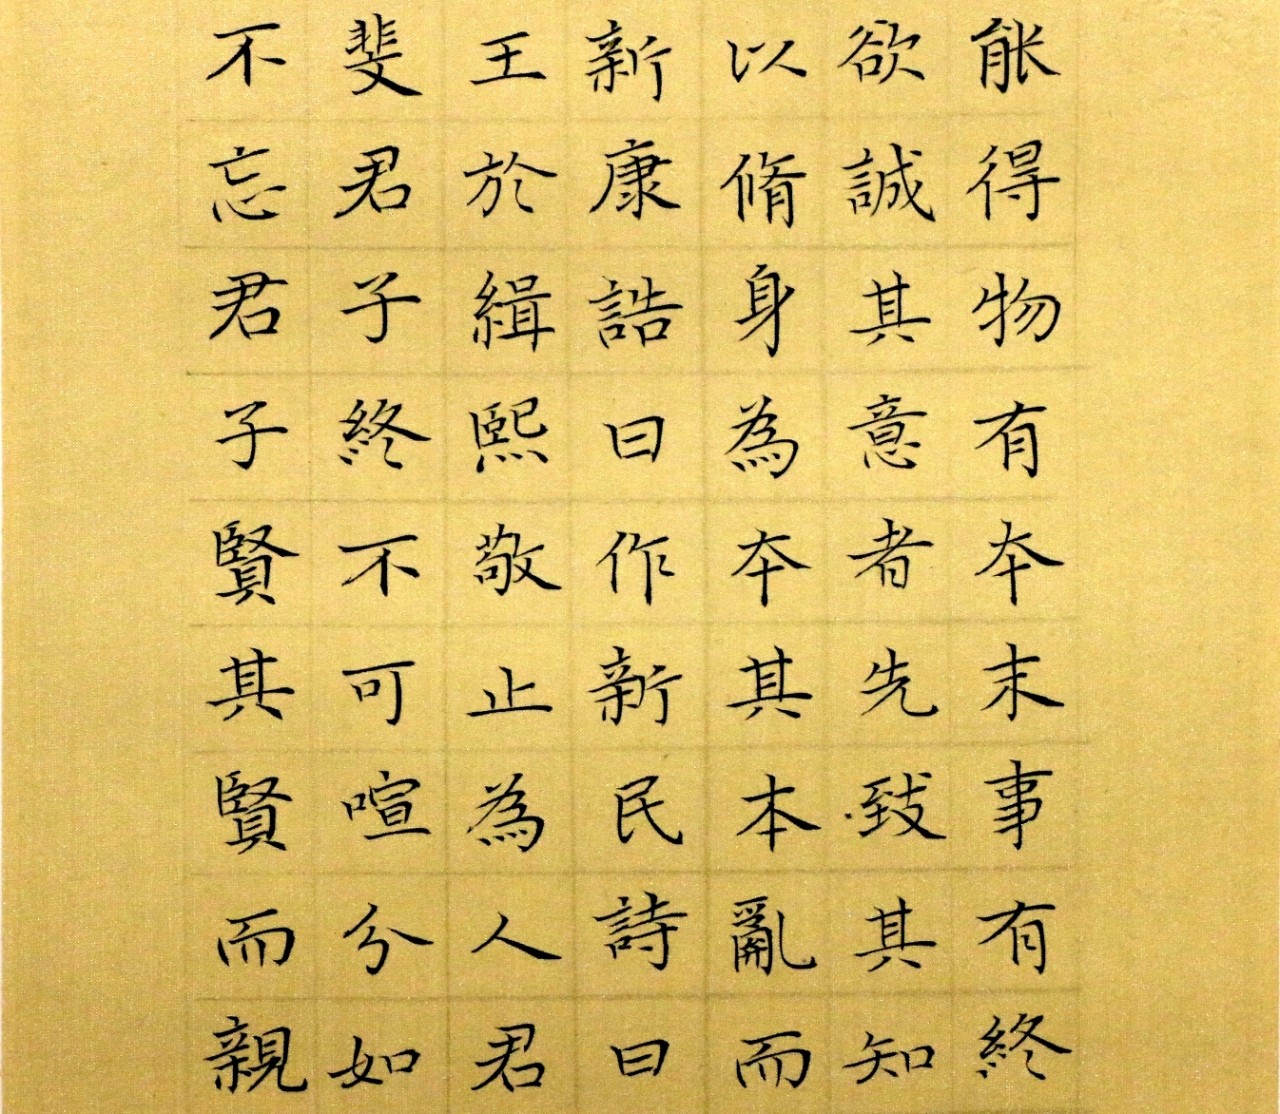 能得物有本末事有終
欲誠其意者先致其知
以脩身為本其本亂而
新康誥曰作新民詩曰
王於緝熙敬止為人君
斐君子終不可喧兮如
不忘君子賢其賢而親